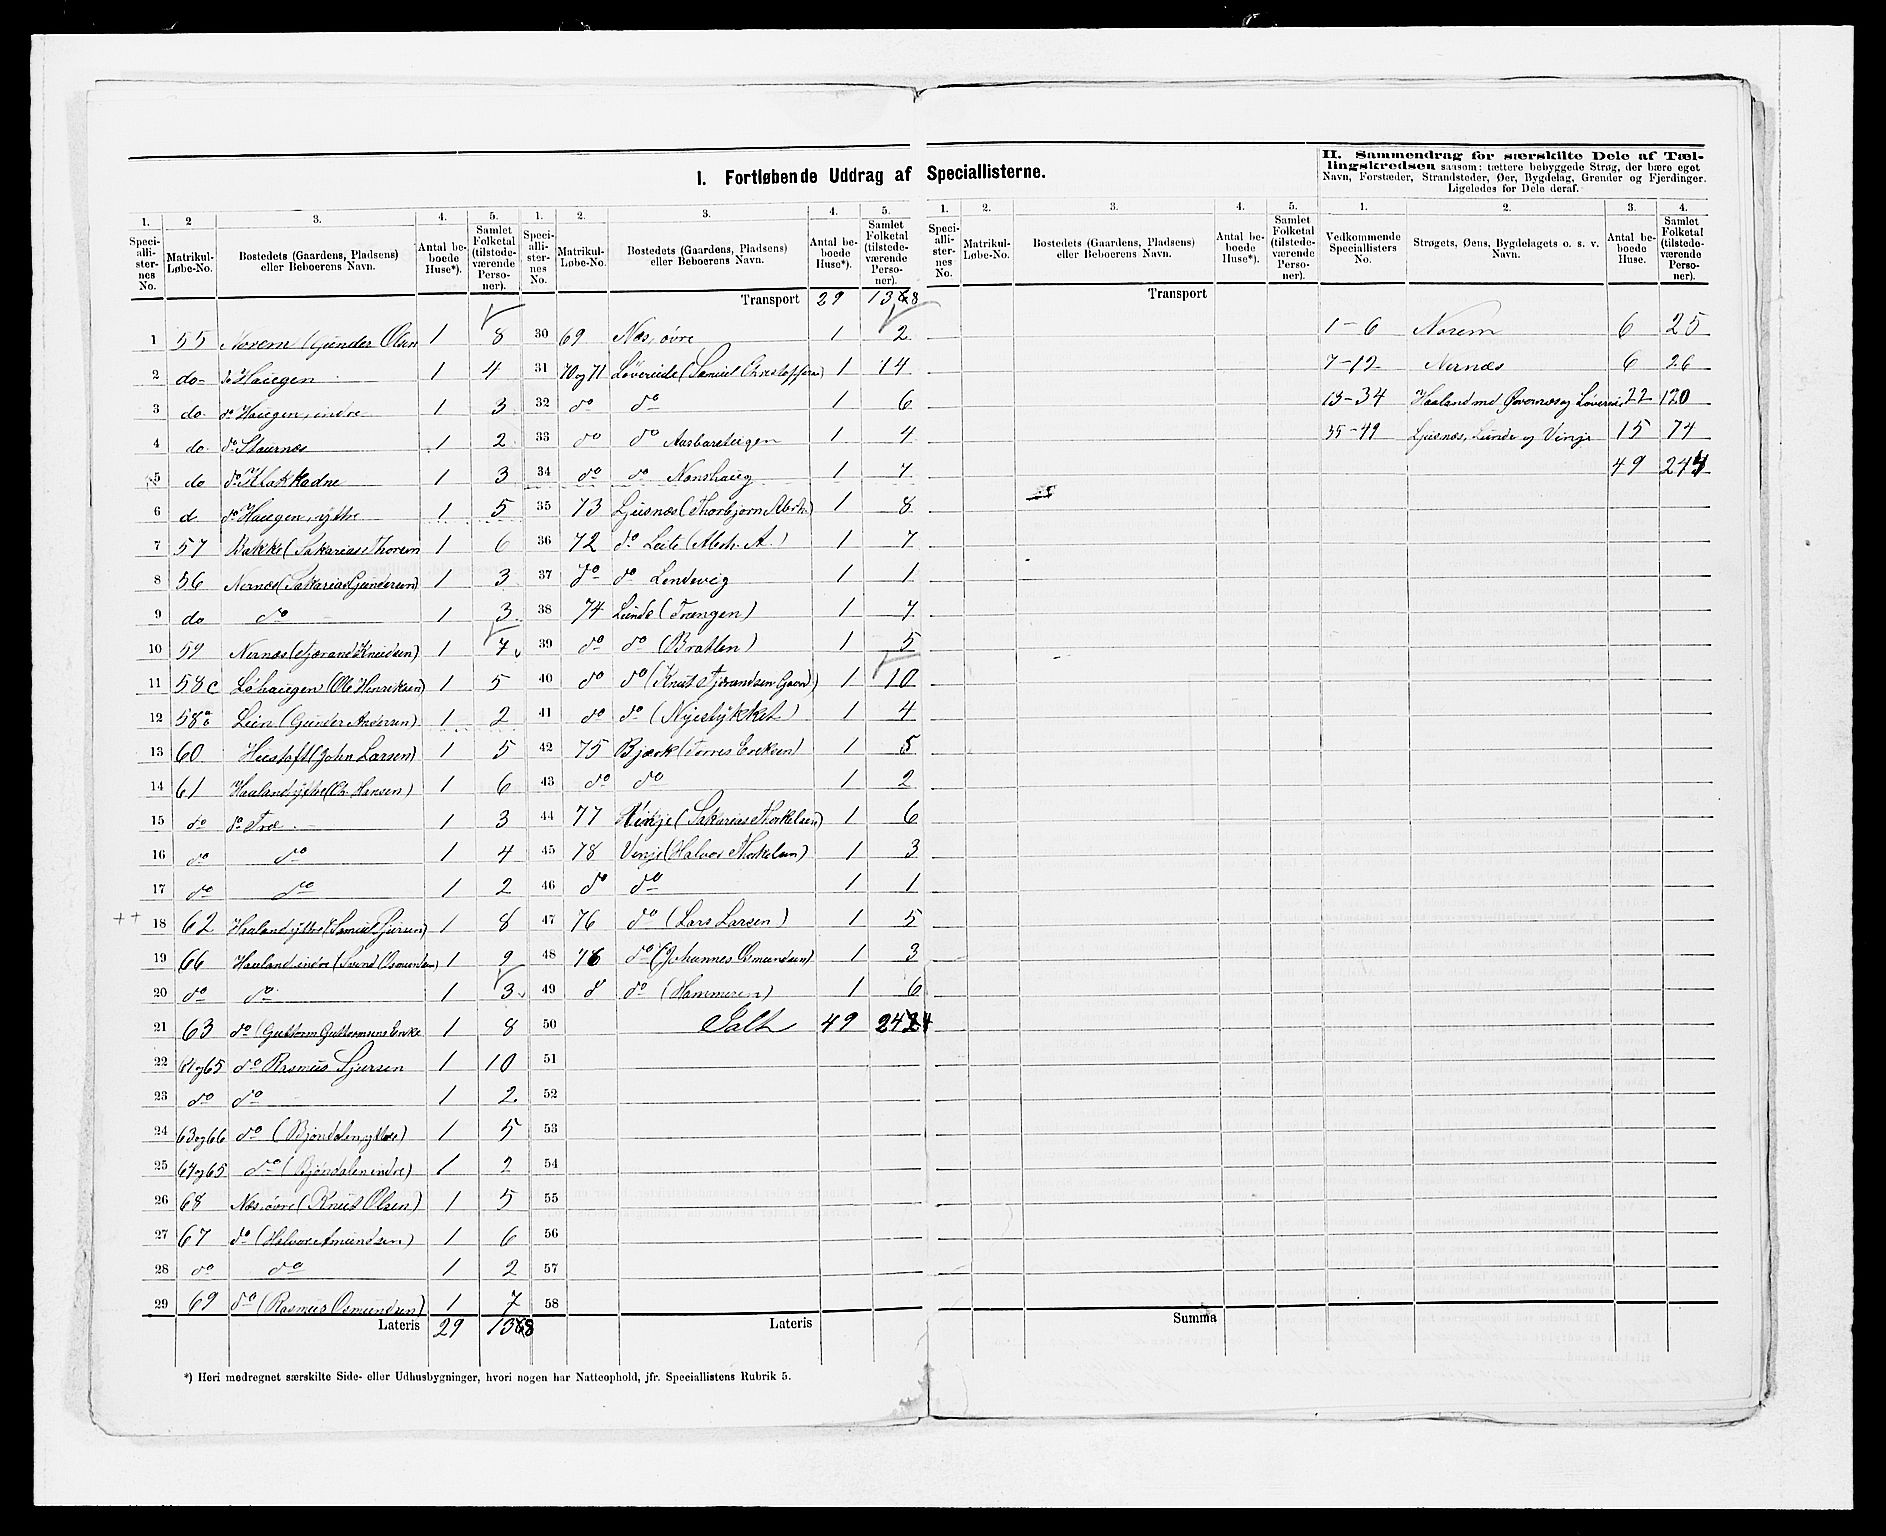 I. Fortløbende Uddrag af Speciallisterne.
II. Sammendrag for særskilte Dele af Tæl-
lingskredsen saasom: tættere bebyggede Strøg, der bære eget
Navn, Forstæder, Strandsteder, Øer, Bygdelag, Grender og Fjerdinger.
Ligeledes for Dele deraf.
1. 2 3. 4. 5. 1. 2. 3. 4. 5. 1. 2. 3. 4. 5. 1. 2. 3. 4.
Speci-alli-ster-nes No. Matrikul-Løbe-No. Bostedets (Gaardens, Pladsens) eller Beboerens Navn. Antal be-boede Huse*). Samlet Folketal (tilstede-værende Perso-ner).
Speci-alli-ster-nes No. Matrikul-Løbe-No. Bostedets (Gaardens, Pladsens) eller Beboerens Navn. Antal be-boede Huse*). Samlet Folketal (tilstede-værende Perso-ner).
Speci-alli-ster-nes No. Matrikul-Løbe-No. Bostedets (Gaardens, Pladsens) eller Beboerens Navn. Antal be-boede Huse*). Samlet Folketal (tilstede-værende Perso-ner).
Vedkommende Speciallisters No. Strøgets, Øens, Bygdelagets o. s. v. Navn. Antal be-boede Huse. Samlet Folketal (tilstede-værende Perso-ner).
1 55 Norem (Gunder Olsen 1 8
2 do- do Haugen 1 4
3 do. do Haugen, indre 1 3
4 do. do Staurnes 1 2
5 do do Hakkadne 1 3
6 d do Haugen, ytre 1 5
7 57 Bakke (Sakarias Thorsen 1 6
8 56 Nernæs (Sakarias Gundersen) 1 3
9 do do 1 3
10 59 Nernæs (Tjærand Knudsen) 1 7
11 58c Løhaugen (Ole Henriksen) 1 5
12 58 Lein (Gunder Andersen) 1 2
13 60 Hustoft (John Larsen) 1 5
14 61 Haaland ytre (Ch. Hansen) 1 6
15 do do Træ 1 3
16 do do 1 4
17 do do 1 2
18 62 Haaland ytre (Samuel Sjursen) 1 8
19 66 Haaland indre (Svend Osmundsen) 1 9
20 do do 1 3
21 63 do (Guttorm Guttormsens Enke 1 8
22 64og65 do Rasmus Sjursen 1 10
23 do do 1 2
24 63og66 do (Bjøndalen ytre) 1 5
25 64og65 do (Bjøndalen indre) 1 2
26 68 Næs, øvre (Knud Olsen) 1 5
27 67 do (Halvor Amundsen) 1 6
28 do do 1 2
29 69 do (Rasmus Osmundsen) 1 7
Lateris 29 138
Transport 29 138
30 69 Næs, øvre 1 2
31 70og71 Løvereide (Samuel Christophersen) 1 14
32 do do 1 6
33 do do Aasbareteigen 1 4
34 do do Nonshaug 1 7
35 73 Ljusnæs (Thorbjørn Abrh.) 1 8
36 72 do Leite (Abrh. A.) 1 7
37 do do Lendevig 1 1
38 74 Lunde (Trængen) 1 7
39 do do (Bratlen) 1 5
40 do do (Knut Tjerandsen Gaard) 1 10
41 do do (Nyestykket) 1 4
42 75 Bjærk (Torres Eriksen) 1 5
43 do do 1 2
44 77 Vinje (Sakarias Thorkelsen) 1 6
45 78 Vinje (Halvor Thorkelsen) 1 3
46 do do 1 1
47 76 do (Lars Larsen) 1 5
48 76 do (Johannes Osmundsen) 1 3
49 d do (Hammeren) 1 6
50 Ialt 49 244
51
52
53
54
55
56
57
58
Lateris
Transport
Summa
1-6 Norem 6 25
7-12 Nernæs 6 26
13-34 Haaland med Øvernæs og Løvereide 22 120
35-49 Ljusnæs, Lunde og Vinje 15 74
49 244
*) Heri medregnet særskilte Side- eller Udhusbygninger, hvori nogen har Natteophold, jfr. Speciallistens Rubrik 5.